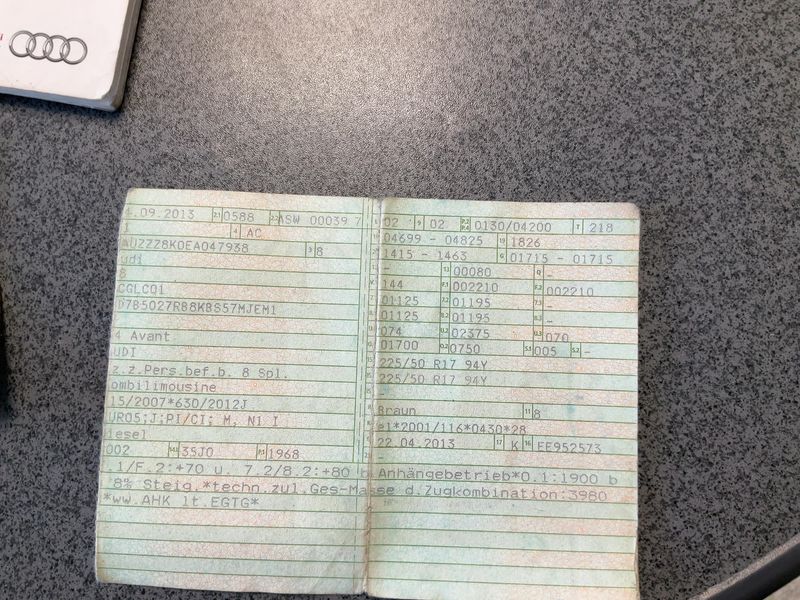 .09.2013 2.1 0588 2.2 ASW 00039 7
4 AC
AUZZZ8K0EA047938 3 8
udi
8
CGLCQ1
D7B5Q27RB8KBS57MJEM1
4 Avant
UDI
z.z.Pers.bef.b. 8 Spl.
ombilimousine
15/2007*630/2012J
URO5;J;PI/CI; M, N1 I
iesel
002 35J0 P.1 1968
02 9 02 P.2 P.4 0130/04200 T 218
04699 - 04825 19 1826
1415 - 1463 G 01715 - 01715
- 13 00080 Q -
144 F.1 002210 F.2 002210
01125 7.2 01195 7.3 -
01125 8.2 01195 8.3 -
074 U.2 02375 U.3 070
01700 O.2 0750 S.1 005 S.2 -
225/50 R17 94Y
225/50 R17 94Y
-
Braun 11 8
e1*2001/116*0430*28
22.04.2013 17 K 16 EE952573
-
.1/F.2:+70 u. 7.2/8.2:+80 b Anhängebetrieb*O.1:1900 b
8% Steig.*techn.zul.Ges-Masse d.Zugkombination:3980
*ww.AHK lt.EGTG*